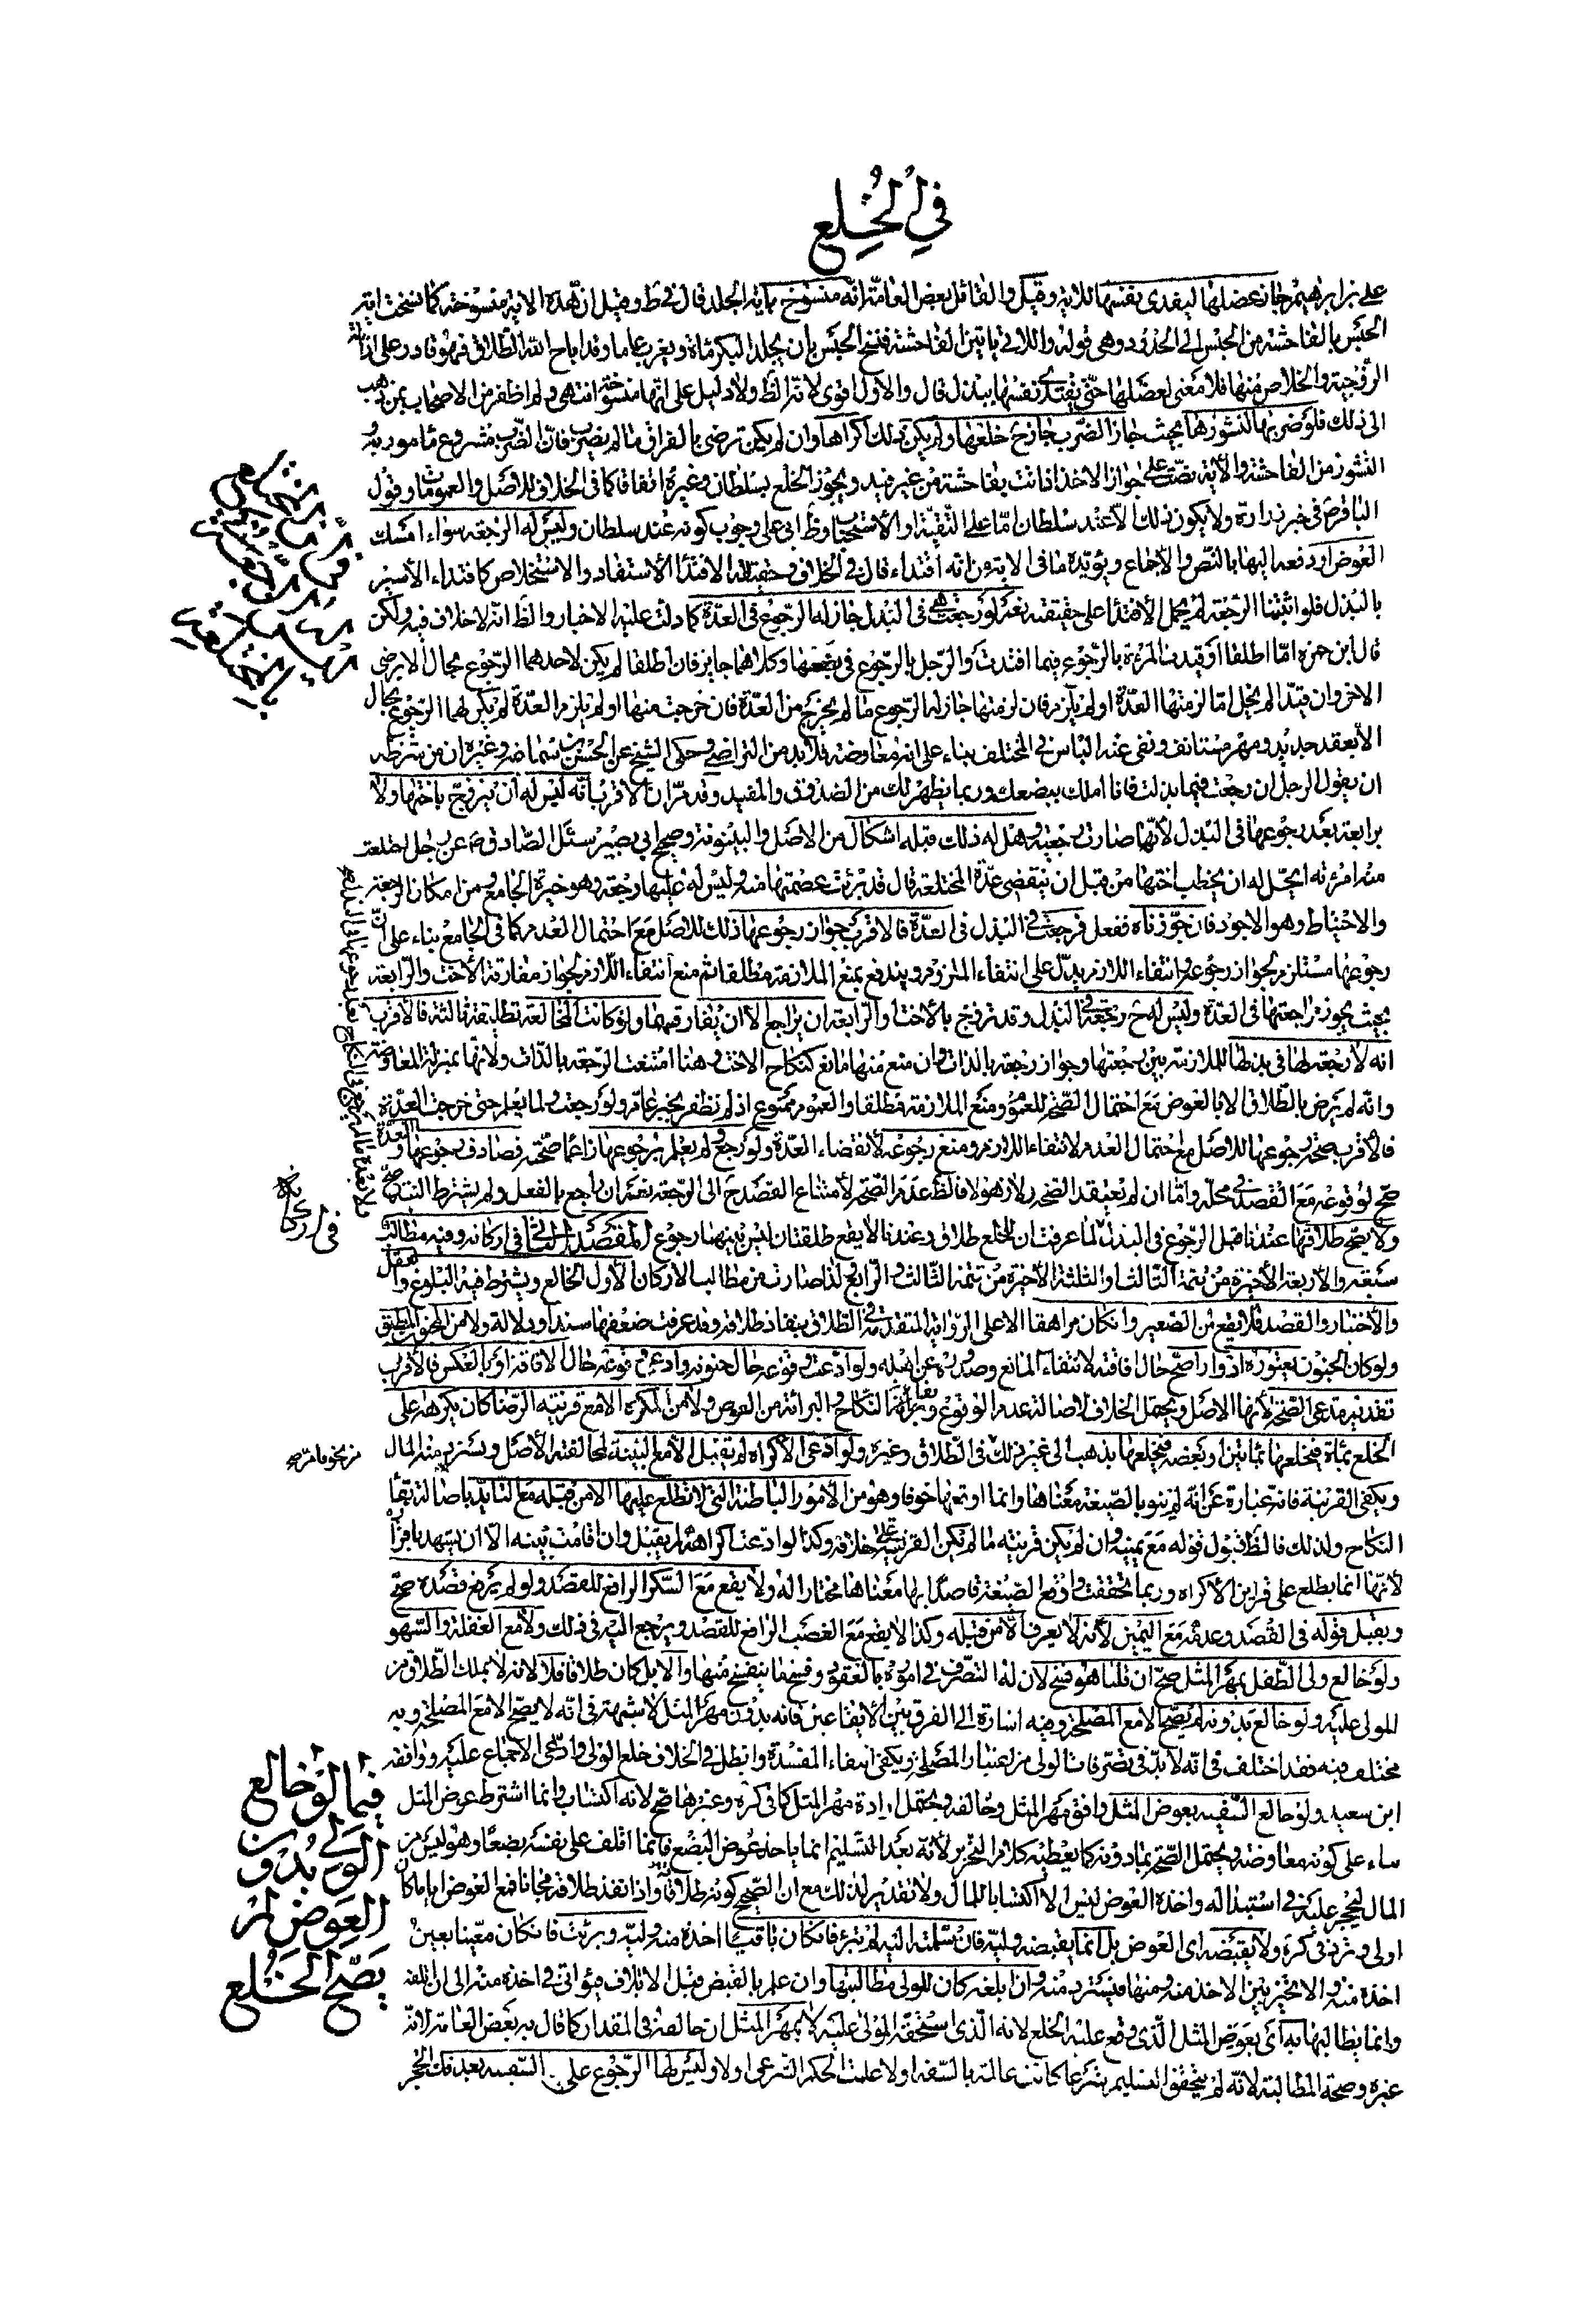 في الخلع
علي بن ابرهيم جاز عضلها ليفدى نفسها للاية وقيل والقائل بعض العامة انه منسوخ باية الجلد قال في ط وقيل ان هذه الاية منسوخة كما نسخت اية
الحبس بالفاحشة من الحبس الى الحدود وهى قوله واللاتي ياتين الفاحشة فنسخ الحبس بان يجلد البكر مأة ويغرب عاما وقد اباح الله الطلاق فهو قادر على ازالة
الزوجية والخلاص منها فلا معنى لعضلها حتى يفتدى نفسها ببذل قال والاول اقوى لانه الظ ولا دليل على انها منسوخة انتهى ولم اظفر من الاصحاب بمن ذهب
الى ذلك فلو ضربها لنشوزها بحيث جاز الضرب جاز ح خلعها ولم يكن ذلك اكراها وان لم يكن ترضى بالفراق ما لم يضرب فان الضرب مشروع مامور به و
النشوز من الفاحشة والاية نصت على جواز الاخذ اذا اتت بفاحشة من غير قيد ويجوز الخلع بسلطان وغيره اتفاقا كما في الخلاف للاصل والعمومات وقول
الباقر ع في خبر زرارة ولا يكون ذلك الا عند سلطان اما على التقية او الاستحباب وظ ابي على وجوب كونه عند سلطان وليس له الرجعة سواء امسك
العوض او دفعه اليها بالنص والاجماع ويؤيده ما في الاية من انه افتداء قال في الخلاف وحقيقة الافتداء الاستنقاذ والاستخلاص كافتداء الاسير
بالبذل فلو اثبتنا الرجعة لم يحمل الافتداء على حقيقته نعم لو رجعت هى في البذل جاز له الرجوع في العدة كما دلت عليه الاخبار والظ انه لا خلاف فيه ولكن
قال ابن حمزه اما اطلقا او قيدت المرءة بالرجوع فيما افتدت والرجل بالرجوع في بضعها وكلاهما جايز فان اطلقا لم يكن لاحدهما الرجوع بحال الا برضى
الاخر وان قيدا لم يخل اما لزمتها العدة او لم يلزم فان لزمتها جاز له الرجوع ما لم يخرج من العدة فان خرجت منها او لم يلزم العدة لم يكن لهما الرجوع بحال
الا بعقد جديد ومهر مستانف ونفى عنه الباس في المختلف بناء على انه معاوضة فلا بد من التراضى وحكى الشيخ عن الحسن بن سماعة وغيره ان من شرطه
ان يقول الرجل ان رجعت فيما بذلت فانا املك ببضعك وربما يظهر ذلك من الصدوق والمفيد وقد مر ان الاقرب انه ليس له ان يتزوج باختها ولا
برابعة بعد رجوعها في البذل لانها صارت رجعية وهل له ذلك قبله اشكال من الاصل والبينونة وصحيح ابي بصير سئل الصادق ع عن رجل اختلعت
منه امرءته ايحل له ان يخطب اختها من قبل ان ينقضى عدة المختلعة قال قد برئت عصمتها منه وليس له عليها رجعة وهو خيرة الجامع ومن امكان الرجعة
والاحتياط وهو الاجود فان جوزناه ففعل فرجعت في البذل في العدة فالاقرب جواز رجوعها ذلك للاصل مع احتمال العدم كما في الجامع بناء على ان
رجوعها مستلزم لجواز رجوعه وانتفاء اللازم يدل على انتفاء الملزوم ويندفع بمنع الملازمة مطلقا ثم منع انتفاء اللازم لجواز مفارقة الاخت والرابعة
بحيث يجوز مراجعتها في العدة وليس له ح رجعة في البذل وقد تزوج بالاخت او الرابعة ان يراجع الا ان يفارقهما ولو كانت المخالعة بتطليقة ثالثة فالاقرب
انه لا رجعة لها في بذلها للملازمة بين رجعتها وجواز رجعته بالذات وان منع منها مانع كنكاح الاخت وهنا امتنعت الرجعة بالذات ولانها بمنزلة المعاوضة
وانه لم يرض بالطلاق الا بالعوض مع احتمال الصحة للعموم ومنع الملازمة مطلقا والعموم ممنوع اذ لم نظفر بخبر عام ولو رجعت ولما يعلم حتى خرجت العدة
فالاقرب صحة رجوعها للاصل مع احتمال العدم لانتفاء اللازم ومنع رجوعه لانقضاء العدة ولو رجع ولم يعلم برجوعها زاعما صحته فصادف رجوعها والعدة
صح لوقوعه مع القصد في محله واما ان لم يعتقد الصحة ولا ذهولا فالظ عدم الصحة لامتناع القصد ح الى الرجعة نعم ان راجع بالفعل ولم يشترط النية صح
ولا يصح طلاقها عندنا قبل الرجوع في البذل لما عرفت ان الخلع طلاق وعندنا لا يقع طلقتان ليس بينهما رجوع المقصد الثاني في اركانه وفيه مطالب
سبعة والاربعة الاخيرة من تتمة الثالث والثلثة الاخيرة من تتمة الثالث والرابع لذا صارت من مطالب الاركان الاول الخالع ويشترط فيه البلوغ والعقل
والاختيار والقصد فلا يقع من الصغير وان كان مراهقا الا على الرواية المتقدمة في الطلاق بنفاذ طلاقه وقد عرفت ضعفها سندا ودلالة ولا من المجنون المطبق
ولو كان المجنون يعتوره ادوارا صح حال افاقته لانتفاء المانع وصدوره عن اهله ولو ادعت وقوعه حال جنونه وادعى وقوعه حال الافاقة او بالعكس فالاقرب
تقديم مدعى الصحة لانها الاصل ويحتمل الخلاف لاصالة عدم الوقوع وبقاء النكاح والبراءة من العوض ولا من المكره الا مع قرينة الرضا كان يكرهه على
الخلع بمأة فيخلعها بمأتين او بفضة فيخلعها بذهب الى غير ذلك في الطلاق وغيره ولو ادعى الاكراه لم تقبل الا مع البينة لمخالفته الاصل ويسترد منه المال
ويكفى القرينة فانه عبارة عن انه لم ينو بالصيغة معناها وانما اوقعها خوفا وهو من الامور الباطنة التى لا نطلع عليها الا من قبله مع التأييد باصالة بقاء
النكاح ولذلك فالظ قبول قوله مع يمينه وان لم يكن قرينة ما لم يكن القرينة على خلافه وكذا لو ادعت اكراهه لم يقبل وان اقامت بينه الا ان يشهد باقراره
لانها انما يطلع على قراين الاكراه وربما تحققت واوقع الصيغة قاصدا بها معناها مختارا له ولا يقع مع السكر الرافع للقصد ولو لم يرفع قصده صح
ويقبل قوله في القصد وعدمه مع اليمين لانه لا يعرف الا من قبله وكذا لا يقع مع الغضب الرافع للقصد ويرجع اليه في ذلك ولا مع الغفلة والسهو
ولو خالع ولى الطفل بمهر المثل صح ان قلنا هو فسخ لان له التصرف في اموره بالعقود وفسخ ما ينفسخ منها والا بل كان طلاقا فلا لانه لا يملك الطلاق من
المولى عليه ولو خالع بدونه لم يصح الا مع المصلحة وفيه اشارة الى الفرق بين الايقاعين فانه بدون مهر المثل لا شبهة في انه لا يصح الا مع المصلحة وبه
مختلف فيه فقد اختلف في انه لا بد في تصرفات الولى من اعتبار المصلحة او يكفى انتفاء المفسدة وابطل في الخلاف خلع الولى وادعى الاجماع عليه ووافقه
ابن سعيد ولو خالع السفيه بعوض المثل وافق مهر المثل وخالفه ويحتمل ارادة مهر المثل كما في كره وغيرها صح لانه اكتساب وانما اشترط عوض المثل
بناء على كونه معاوضة ويحتمل الصحة بما دونه كما يعطيه كلام التحرير لانه بعد التسليم انما ياخذ عوض البضع فانما اتلف على نفسه بضعا وهو ليس من
المال ليحجر عليه في استبداله واخذه العوض ليس الا اكتسابا للمال ولا تقدير لذلك مع ان الصحيح كونه طلاقا واذا نفذ طلاقه مجانا فمع العوض اياما كان
اولى وتردد في كره ولا يقبضه اى العوض بل انما يقبضه وليه فان سلمته اليه لم تبرء فان كان باقيا اخذه منه وليه وبرئت فان كان معينا بعين
اخذه منه والا تخير بين الاخذ منه ومنها فيسترد منه وان اتلفه كان للولى مطالبتها وان علم بالقبض قبل الاتلاف فتوانى في اخذه منه الى ان اتلفه
وانما يطالبها به اى بعوض المثل الذى وقع عليه الخلع لانه الذى استحقه المولى عليه لا بمهر المثل ان خالفه في المقدار كما قال به بعض العامة لانه
غيره وصحة المطالبة لانه لم يتحقق التسليم شرعا كانت عالمة بالسفه اولا علمت الحكم الشرعى اولا وليس لها الرجوع على السفيه بعد فك الحجر
في اركانه
فيما لو خالع
الولي بدون
العوض لم
يصح الخلع